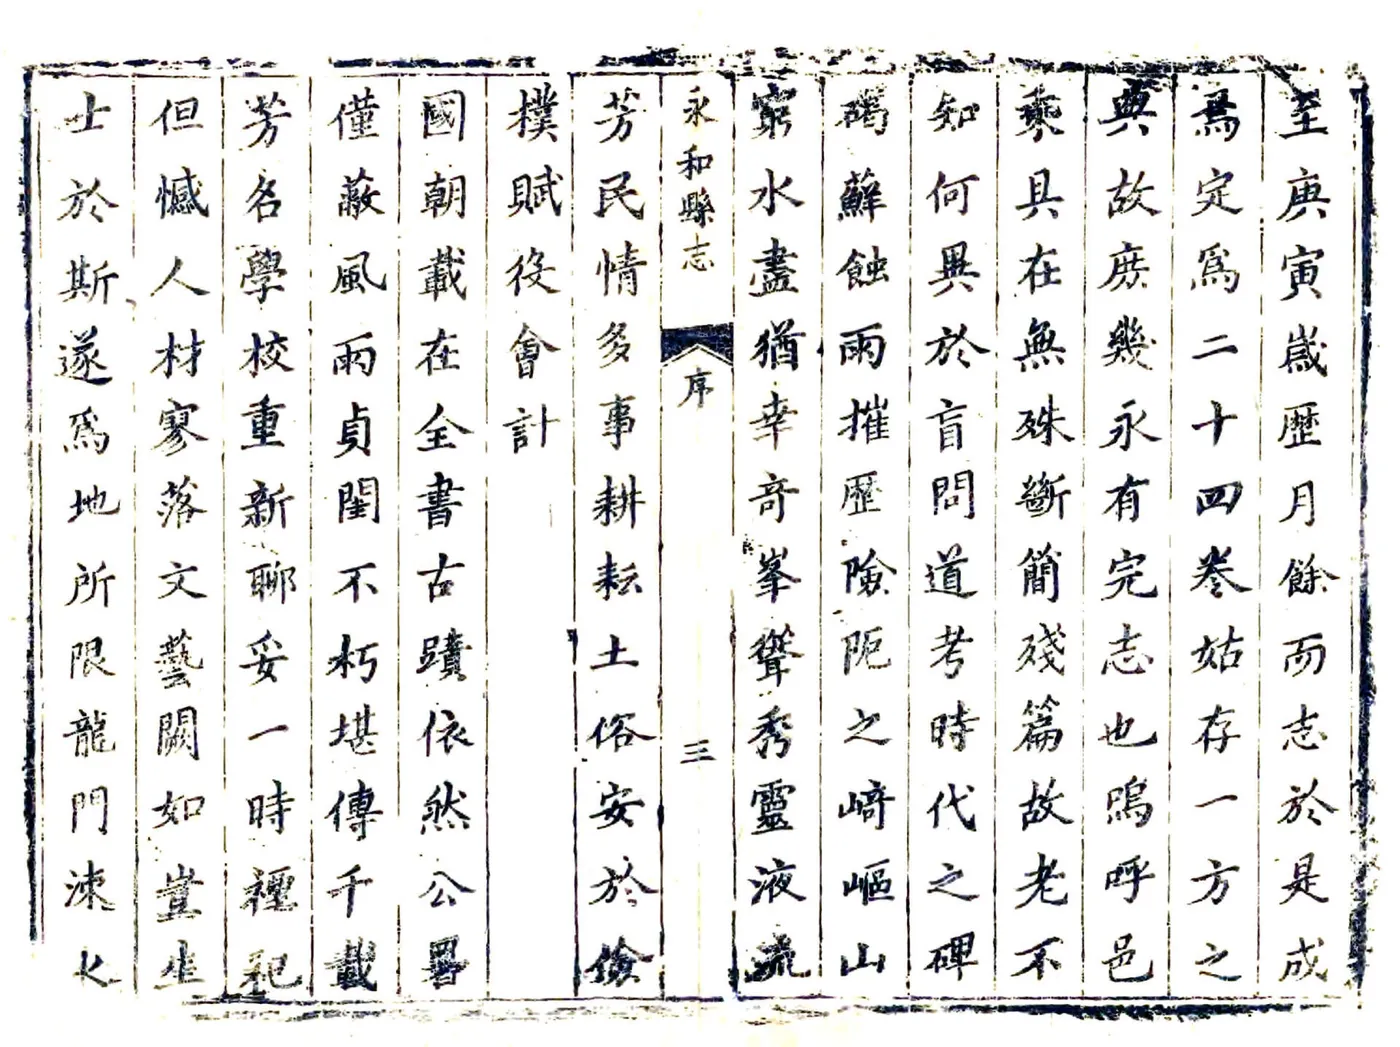 至庚寅歲歷月餘而志於是成
焉定爲二十四卷姑存一方之
典故庶幾永有完志也嗚呼邑
乘具在無殊斷簡殘篇故老不
知何異於盲問道考時代之碑
碣蘚蝕雨摧歷險阨之﨑嶇山
窮水盡猶幸奇峯聳秀靈液流
永和縣志 序 三
芳民情多事耕耘土俗安於儉
樸賦役會計
國朝載在全書古蹟依然公署
僅蔽風雨貞閨不朽堪傳千載
芳名學校重新聊妥一時禋祀
但憾人材寥落文藝闕如豈生
士於斯遂爲地所限龍門涑